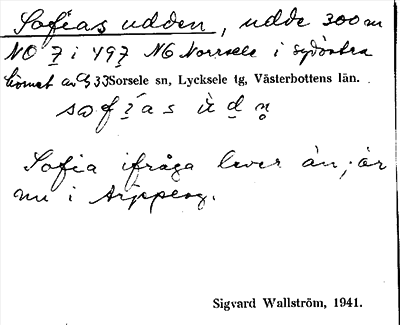 Sofias udden, udde 300 m
NO 7 i 497 NG Norrsele i sydöstra
hörnet av G 33 Sorsele sn, Lycksele tg, Västerbottens län.
sofias ùdn̥
Sofia ifråga lever än; är
nu i Arjeplog.
Sigvard Wallström, 1941.